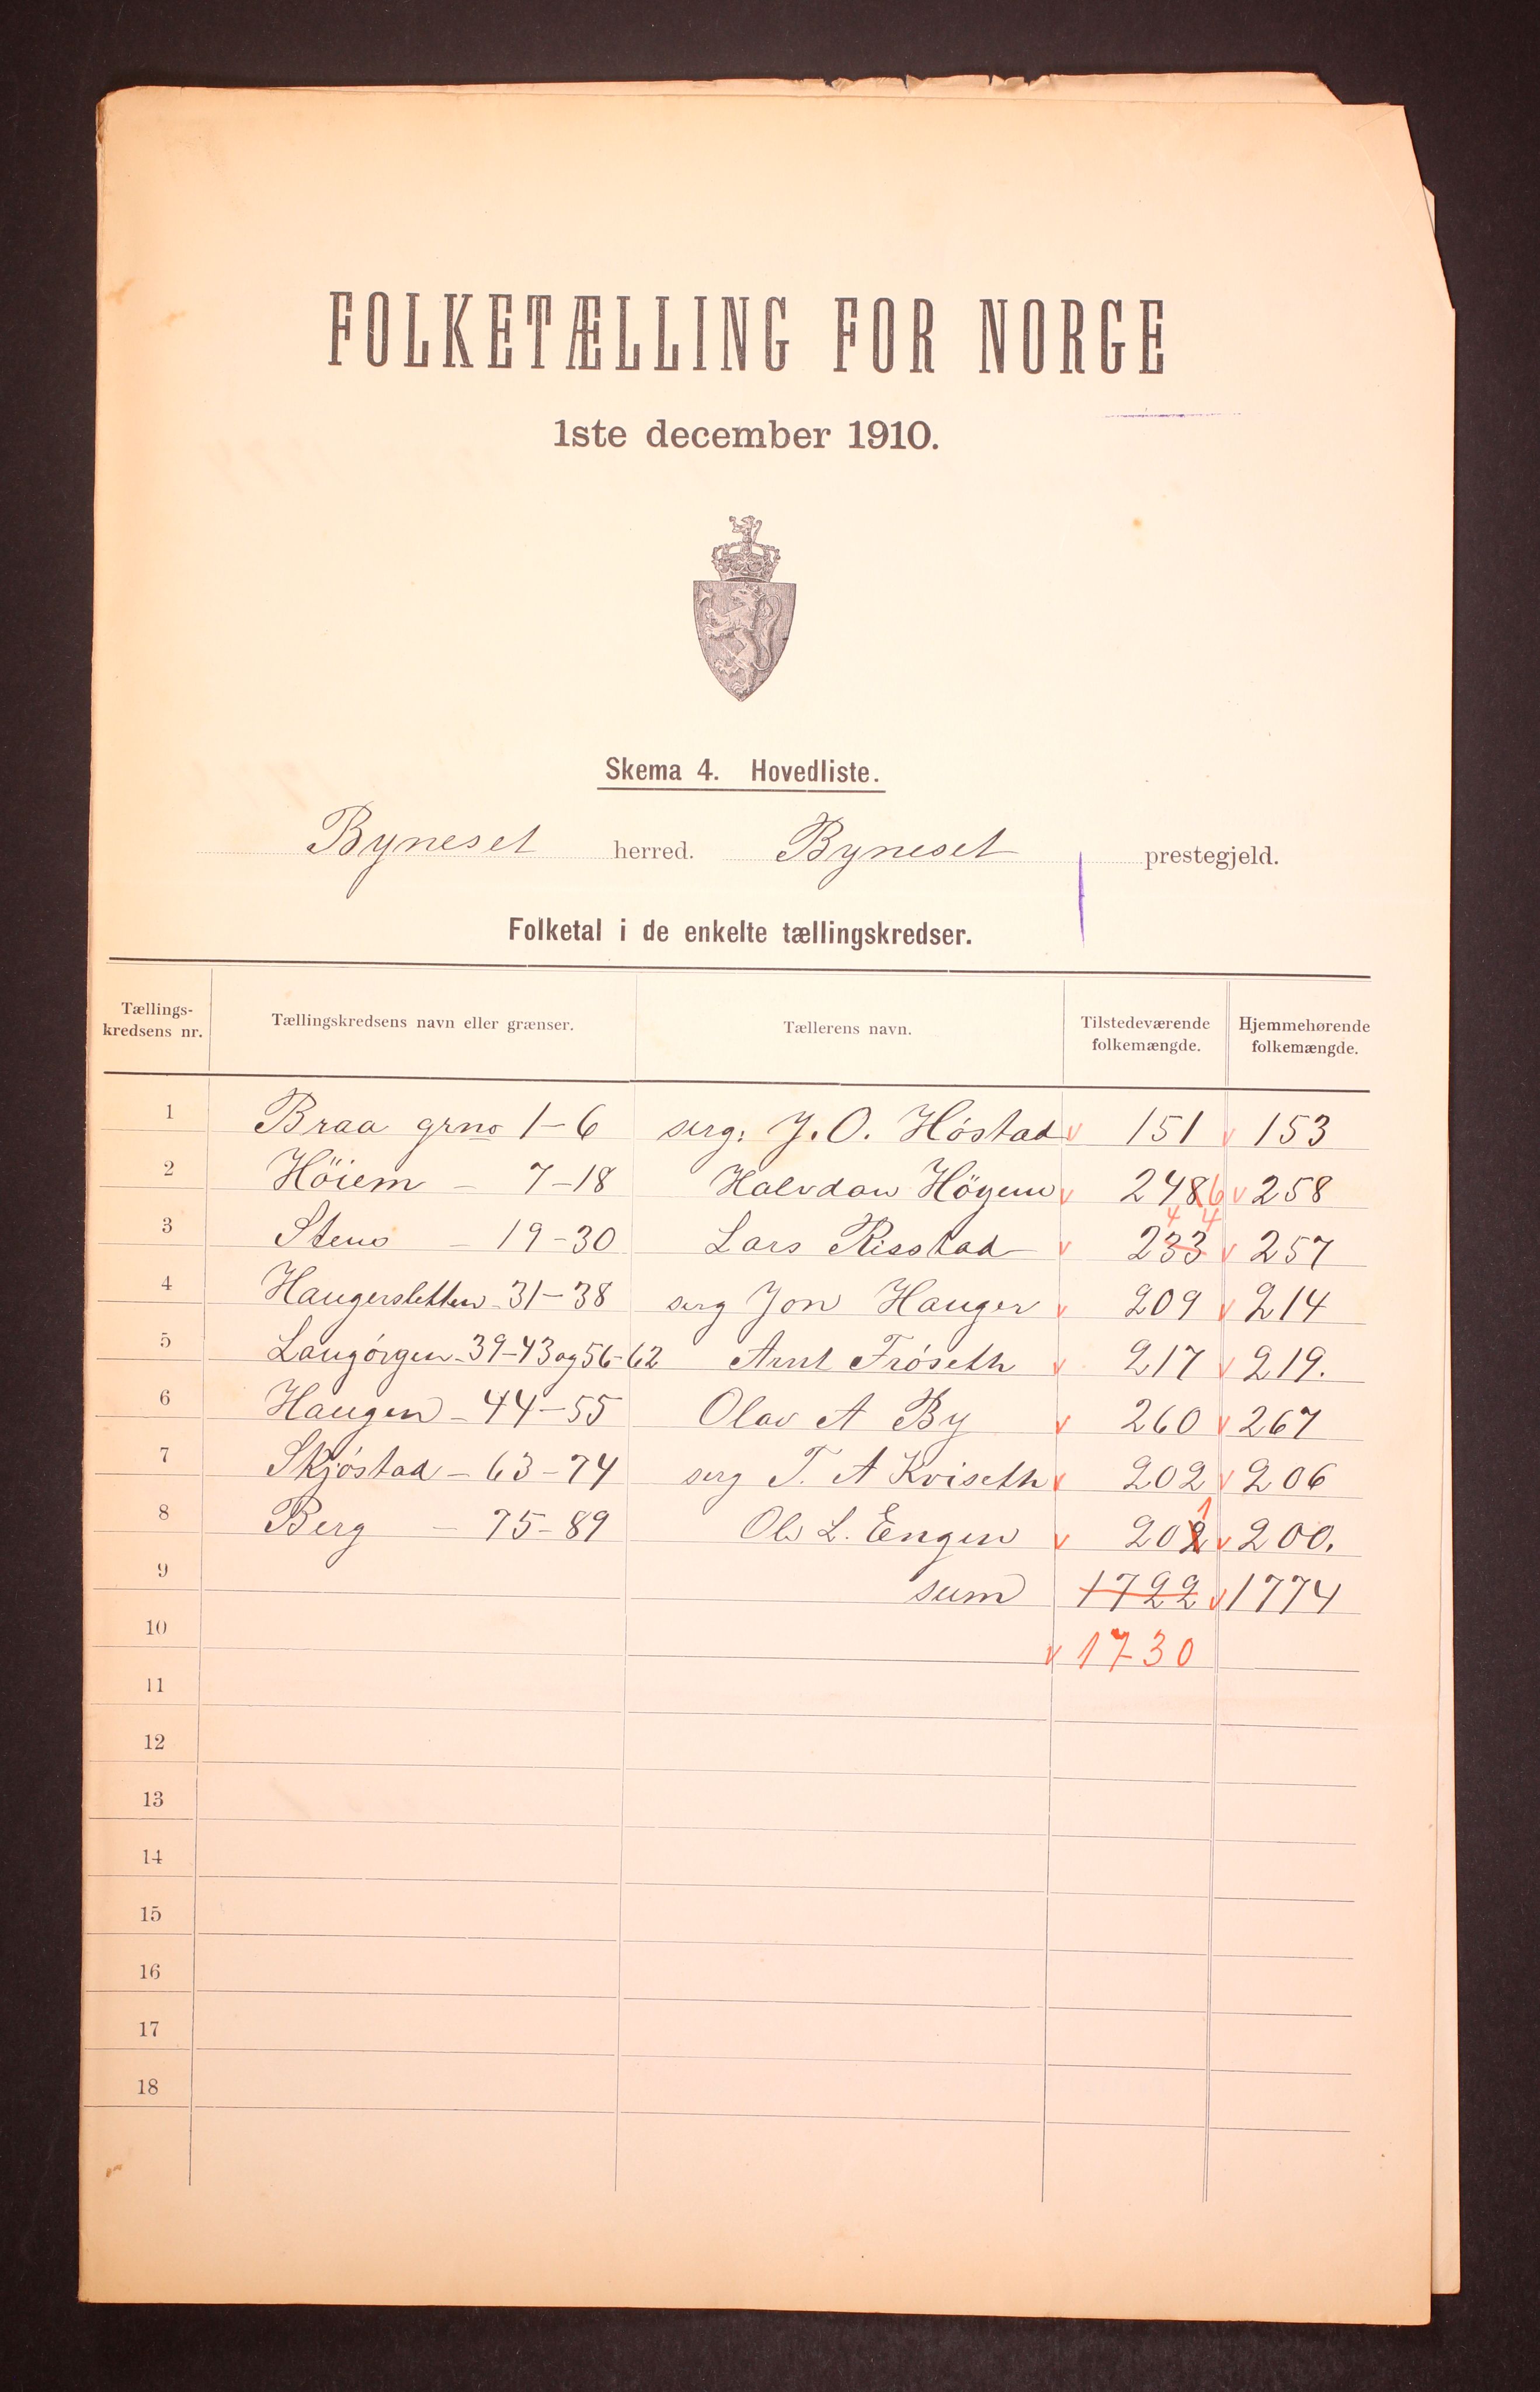 FOLKETÆLLING FOR NORGE
1ste december 1910.
Skema 4. Hovedliste.
Byneset herred. Byneset prestegjeld.
Folketal i de enkelte tællingskredser.
Tællings-kredsens nr. Tællingskredsens navn eller grænser. Tællerens navn. Tilstedeværende folkemængde. Hjemmehørende folkemængde.
1 Braa grno 1-6 serg. J. O. Höstad v 151 v 153
2 Höiem - 7-18 Halvdan Höyem v 248 6 v 258
4 4
3 Steno - 19-30 Lars Risstad v 233 v 257
4 Haugersletten - 31-38 serg Jon Hauger v 209 v 214
5 Langörgen - 39-43 og 56-62 Arnt Fröseth v 217 v 219.
6 Haugen - 44-55 Olav A By v 260 v 267
7 Skjöstad - 63-74 serg T. A Kviseth v 202 v 206
1
8 Berg - 75-89 Ole L. Engen v 202 v 200.
9 sum 1722 v 1774
10 v 1730
11
12
13
14
15
16
17
18